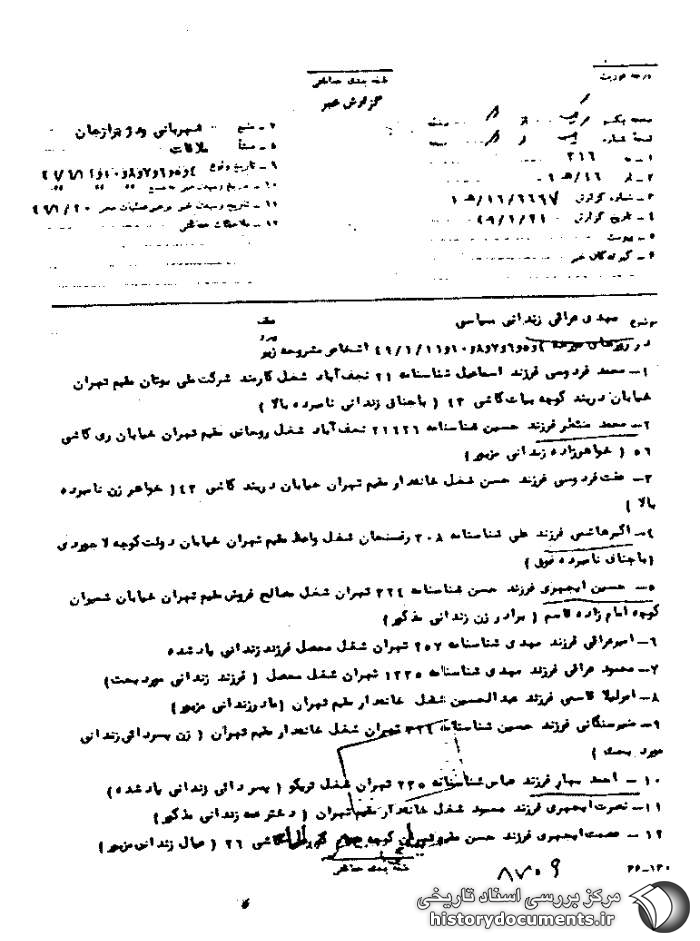 درجه فوریت
طبقه بندی حفاظتی
گزارش خبر
صفحه یکم از
نسخه شماره از
۱ـ به ۳۱۶
۲ـ از
۳ـ شماره گزارش
۴ـ تاریخ گزارش
۵ـ پیوست
۶ـ گیرندگان خبر
۷ـ منبع شهربانی ودژ برازجان
۸ـ منشأ ملاقات
۹ـ تاریخ وقوع
۱۰ـ تاریخ رسیدن خبر به منبع
۱۱ـ تاریخ رسیدن خبر برهبر عملیات
۱۲ـ ملاحظات حفاظتی
موضوع مهدی عراقی زندانی سیاسی
در روزهای اشخاص مشروحه زیر
۱ـ محمد فردوسی فرزند اسماعیل شناسنامه ۲۱ نجف آباد شغل کارمند شرکت ملی بوتان مقیم تهران
خیابان دربند کوچه کاشی ۴۳ ( باجناق زندانی نامبرده بالا )
۲ـ محمد منتظر فرزند حسین شناسنامه ۲۱۶۲۶ نجف آباد شغل روحانی مقیم تهران خیابان ری کاشی
۵۶ ( خواهرزاده زندانی مزبور )
۳ـ عفت فردوسی فرزند حسن شغل خانه دار مقیم تهران خیابان دربند کاشی ۴۳ ( خواهر زن نامبرده
بالا )
۴ـ اکبر هاشمی فرزند علی شناسنامه ۳۰۸ رفسنجان شغل واعظ مقیم تهران خیابان دولت کوچه لاجوردی
(باجناق نامبرده فوق )
۵ـ حسین ایجهری فرزند حسن شناسنامه ۲۲۴ تهران شغل مصالح فروش مقیم تهران خیابان شمیران
کوچه امام زاده قاسم ( برادر زن زندانی مذکور )
۶ـ امیرعراقی فرزند مهدی شناسنامه ۲۵۷ تهران شغل محصل فرزند زندانی یاد شده
۷ـ محمود عراقی فرزند مهدی شناسنامه ۱۲۲۵ تهران شغل محصل ( فرزند زندانی مورد بحث )
۸ـ لیلا قاسمی فرزند عبدالحسین شغل خانه دار مقیم تهران (مادر زندانی مزبور )
۹ـ فرزند حسین شناسنامه تهران شغل خانه دار مقیم تهران ( زن پسر دائی زندانی
مورد بحث )
۱۰ـ احمد فرزند عباس شناسنامه ۲۳۵ تهران شغل ( پسر دائی زندانی یاد شده )
۱۱ـ نصرت ایجهری فرزند محمود شغل خانه دار مقیم تهران ( دختر عمه زندانی مذکور )
۱۲ـ عصمت ایجهری فرزند حسن مقیم تهران کوچه کاشی ۲۶ ( عیال زندانی مزبور )
طبقه بندی حفاظتی
۸۷۰۹
۳۶ـ۱۲۰
مرکز بررسی اسناد تاریخی
historydocuments.ir